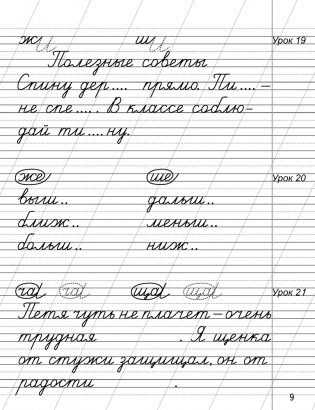 жи ши Урок 19
Полезные советы
Спину дер.... прямо. Пи....–
не спе..... В классе соблю-
дай ти....ну.
же ше Урок 20
выш.. дальш..
ближ.. меньш..
больш.. ниж..
ча ча ща ща Урок 21
Петя чуть не плачет – очень
трудная . Я щенка
от стужи защищал, он от
радости .
9